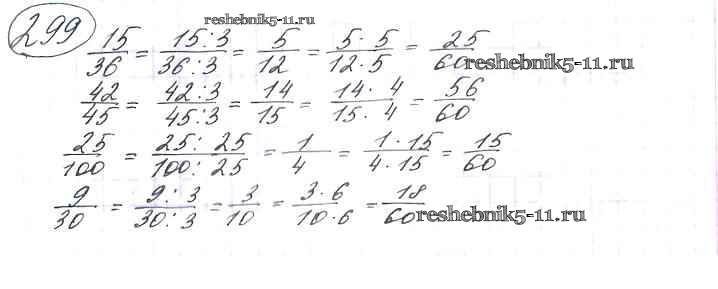 reshebnik5-11.ru
299 15/36 = 15:3/36:3 = 5/12 = 5·5/12·5 = 25/60
reshebnik5-11.ru
42/45 = 42:3/45:3 = 14/15 = 14·4/15·4 = 56/60
25/100 = 25:25/100:25 = 1/4 = 1·15/4·15 = 15/60
9/30 = 9:3/30:3 = 3/10 = 3·6/10·6 = 18/60
reshebnik5-11.ru